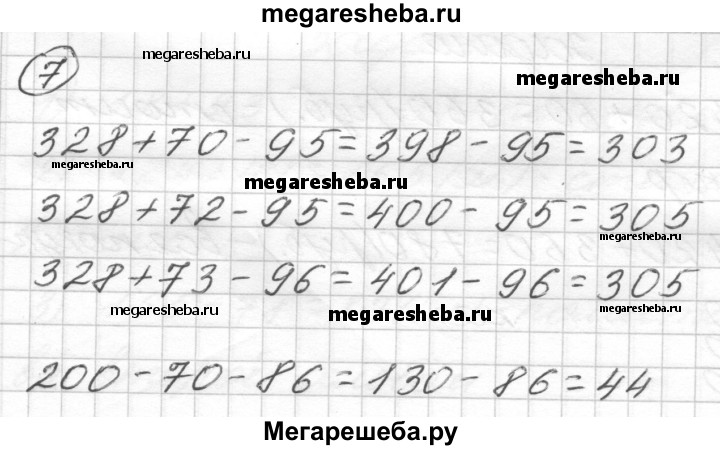 megaresheba.ru
7
megaresheba.ru
megaresheba.ru
328+70-95=398-95=303
megaresheba.ru
megaresheba.ru
328+72-95=400-95=305
megaresheba.ru
328+73-96=401-96=305
megaresheba.ru
megaresheba.ru
megaresheba.ru
200-70-86=130-86=44
Мегарешеба.ру